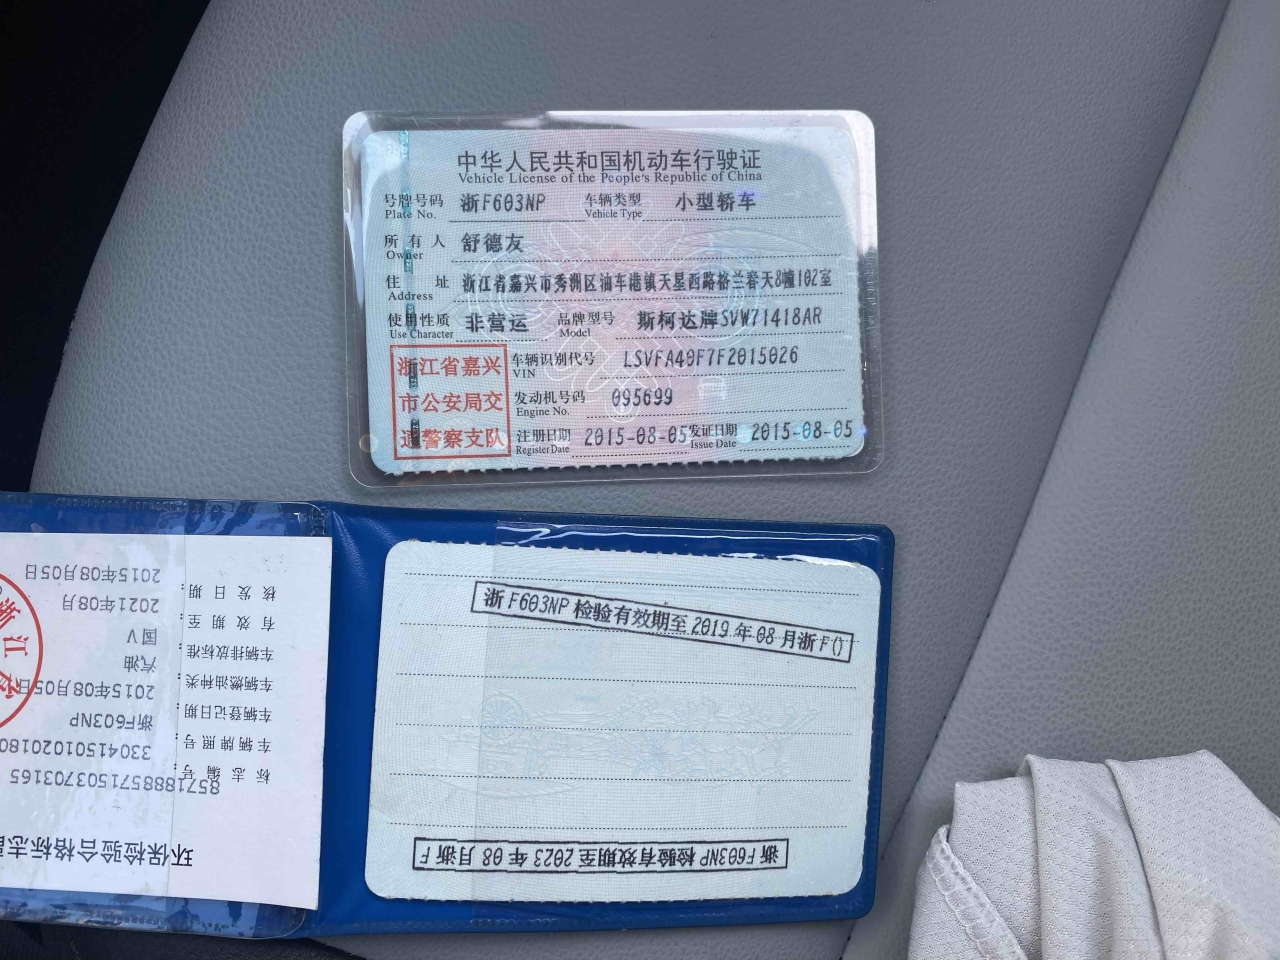 中华人民共和国机动车行驶证
Vehicle License of the People's Republic of China
号牌号码 浙F603NP 车辆类型 小型轿车
Plate No. Vehicle Type
所有人 舒德友
Owner
住址 浙江省嘉兴市秀洲区油车港镇天星西路格兰春天8幢102室
Address
使用性质 非营运 品牌型号 斯柯达牌SVW71418AR
Use Character Model
浙江省嘉兴
市公安局交
通警察支队
车辆识别代号 LSVFA49F7F2015026
VIN
发动机号码 095699
Engine No.
注册日期 2015-08-05 发证日期 2015-08-05
Register Date Issue Date
浙F603NP 检验有效期至 2019 年 08 月浙F()
浙F603NP 检验有效期至 2023 年 08 月浙F
环保检验合格标志
8571888571503703165
标志编号: 33041501020180
车辆牌照号: 浙F603NP
车辆登记日期: 2015年08月05日
车辆燃油种类: 汽油
车辆排放标准: 国V
有效期至: 2021年08月
核发日期: 2015年08月05日
浙江省